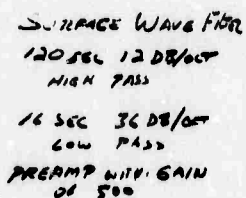 SURFACE WAVE FILTER
120 SEC 12 DB/OCT
HIGH PASS
16 SEC 36 DB/OCT
LOW PASS
PREAMP WITH GAIN
OF 500